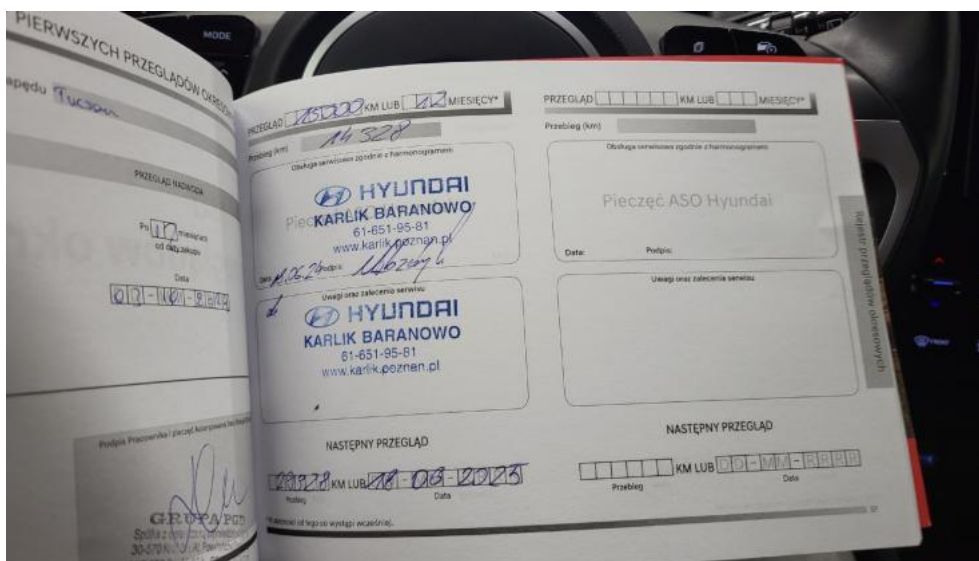 MODE
PIERWSZYCH PRZEGLĄDÓW
Tucson
PRZEGLĄD NADWOZIA
Po 12 miesiącach
od daty zakupu
Data
Podpis Pracownika i pieczęć
GRUPA PGD
30-570
PRZEGLĄD 15000 KM LUB 12 MIESIĘCY*
Przebieg (km) 14 328
Obsługa serwisowa zgodnie z harmonogramem
HYUNDAI
KARLIK BARANOWO
61-651-95-81
www.karlik.poznan.pl
Data: Podpis:
Uwagi oraz zalecenia serwisu
HYUNDAI
KARLIK BARANOWO
61-651-95-81
www.karlik.poznan.pl
NASTĘPNY PRZEGLĄD
KM LUB
Przebieg Data
od tego co wystąpi wcześniej.
PRZEGLĄD KM LUB MIESIĘCY*
Przebieg (km)
Obsługa serwisowa zgodnie z harmonogramem
Pieczęć ASO Hyundai
Data: Podpis:
Uwagi oraz zalecenia serwisu
NASTĘPNY PRZEGLĄD
KM LUB DD-MM-RRRR
Przebieg Data
Rejestr przeglądów okresowych